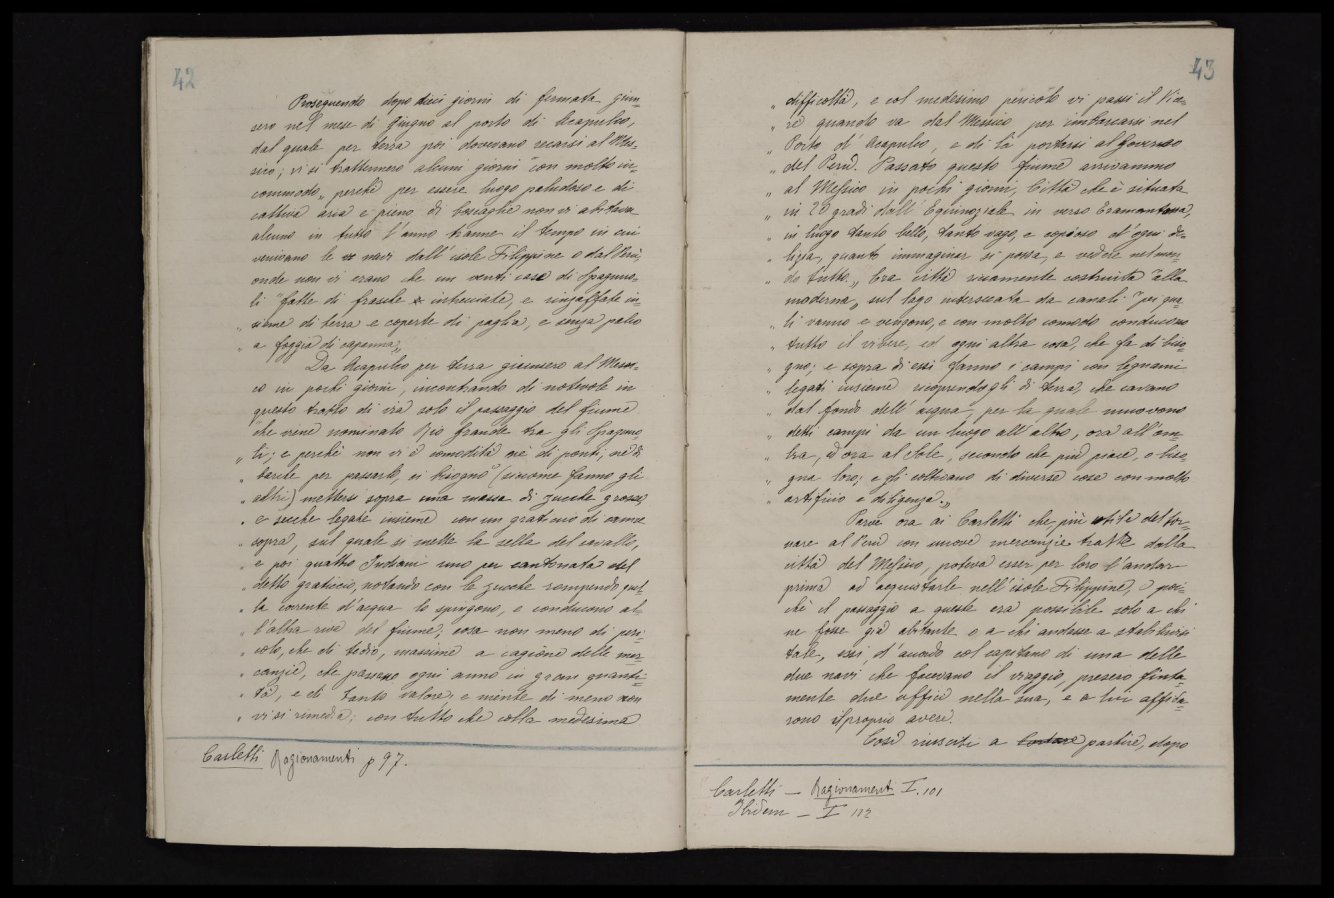 42
Proseguendo dopo dieci giorni di fermata giun=
sero nel mese di Giugno al porto di Acapulco,
dal quale per terra poi dovevano recarsi al Mes=
sico; vi si trattennero alcuni giorni con molto in=
commodo „ perchè per essere luogo paludoso e di
cattiva aria e pieno di boscaglie non vi abitava
alcuno in tutto l'anno tranne il tempo in cui
venivano le navi dall'isole Filippine o dal Perù,
onde non vi erano che un venti case di Spagnuo=
li fatte di frasche intrecciate, e rinzaffate in=
„ sieme di terra e coperte di paglia, e senza palco
„ a foggia di capanna„
Da Acapulco per terra giunsero al Messi=
co in pochi giorni, incontrando di notevole in
questo tratto di via solo il passaggio del fiume
che viene nominato Rio Grande tra gli Spagnuo=
„ li; e perchè non vi è comodità nè di ponti, nè di
„ barche per passarlo, ci bisognò (siccome fanno gli
„ altri) mettersi sopra una massa di zucche grosse,
„ e secche legate insieme con un graticcio di canne
„ sopra, sul quale si mette la sella del cavallo,
„ e poi quattro Indiani uno per cantonata del
„ detto graticcio, notando con le zucche rompendo
„ la corrente d'acqua lo spingono, e conducono al=
„ l'altra riva del fiume, cosa non meno di peri=
„ colo, che di tedio, massime a cagione delle mer=
„ canzie, che passano ogni anno in gran quanti=
„ tà, e di tanto valore, e niente di meno non
„ vi si rimedia; con tutto che colla medesima
Carletti Ragionamenti p 97.
43
„ difficoltà, e col medesimo pericolo vi passi il Vice=
„ rè quando va dal Messico per imbarcarsi nel
„ Porto d'Acapulco, e di là portarsi al governo
„ del Perù. Passato questo fiume arrivammo
„ al Messico in pochi giorni, Città che è situata
„ in 20 gradi dall'Equinoziale in verso Tramontana,
„ in luogo tanto bello, tanto vago, e copioso d'ogni de=
„ lizia, quanto immaginar si possa, e vedere nel mon=
„ do tutto.„ Era città riccamente costruita "alla
moderna„ sul lago intersecata da canali "pei qua=
„ li vanno e vengono, e con molto comodo conducono
„ tutto il vivere, ed ogni altra cosa, che fa di biso=
„ gno; e sopra di essi fanno i campi con legnami
„ legati insieme ricoprendogli di terra, che cavano
„ dal fondo dell'acqua, per la quale muovono
„ detti campi da un luogo all'altro, ora all'om=
„ bra, ed ora al Sole, secondo che più piace, o biso=
„ gna loro; e gli coltivano di diverse cose con molto
„ artifizio e diligenza.„
Parve ora ai Carletti che più utile del tor=
nare al Perù con nuove mercanzie tratte dalla
città del Messico, poteva esser per loro l'andar
prima ad acquistarle nell'isole Filippine, e poi=
chè il passaggio a queste era possibile solo a chi
ne fosse già abitante o a chi andasse a stabilirsi
tale, essi d'accordo col capitano di una delle
due navi che facevano il viaggio, presero finta=
mente due uffici nella sua, e a lui affida=
rono il proprio avere.
Così riusciti a partire, dopo
Carletti — Ragionamenti I. 101
Ibidem — I 112